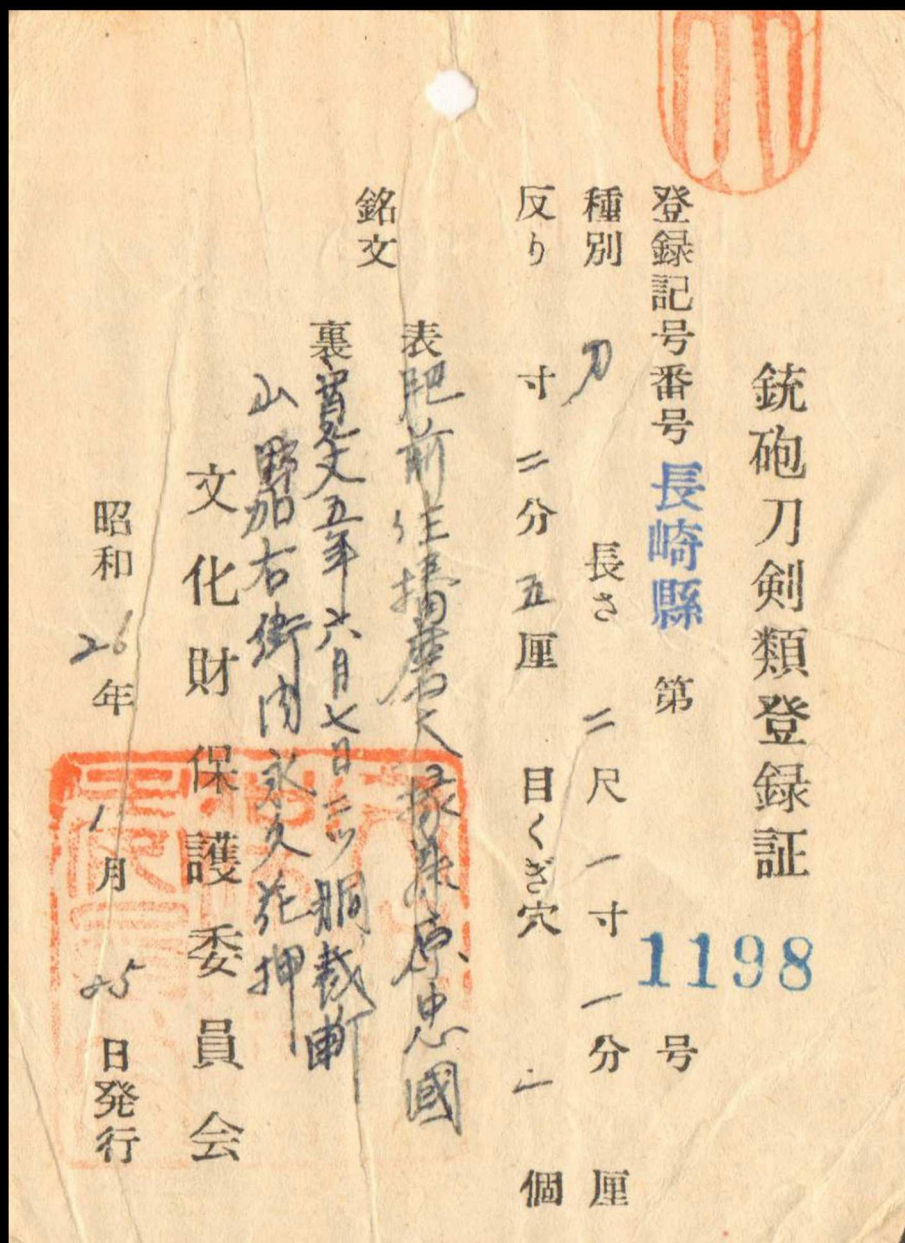 銃砲刀剣類登録証
登録記号番号 長崎縣 第 1198 号
種別 刀 長さ 二尺一寸一分 厘
反り 寸二分五厘 目くぎ穴 二 個
銘文
表 肥前住播磨大掾藤原忠國
裏 寛文五年六月七日二ツ胴裁断
山野加右衛門永久花押
文化財保護委員会
昭和26年1月25日発行